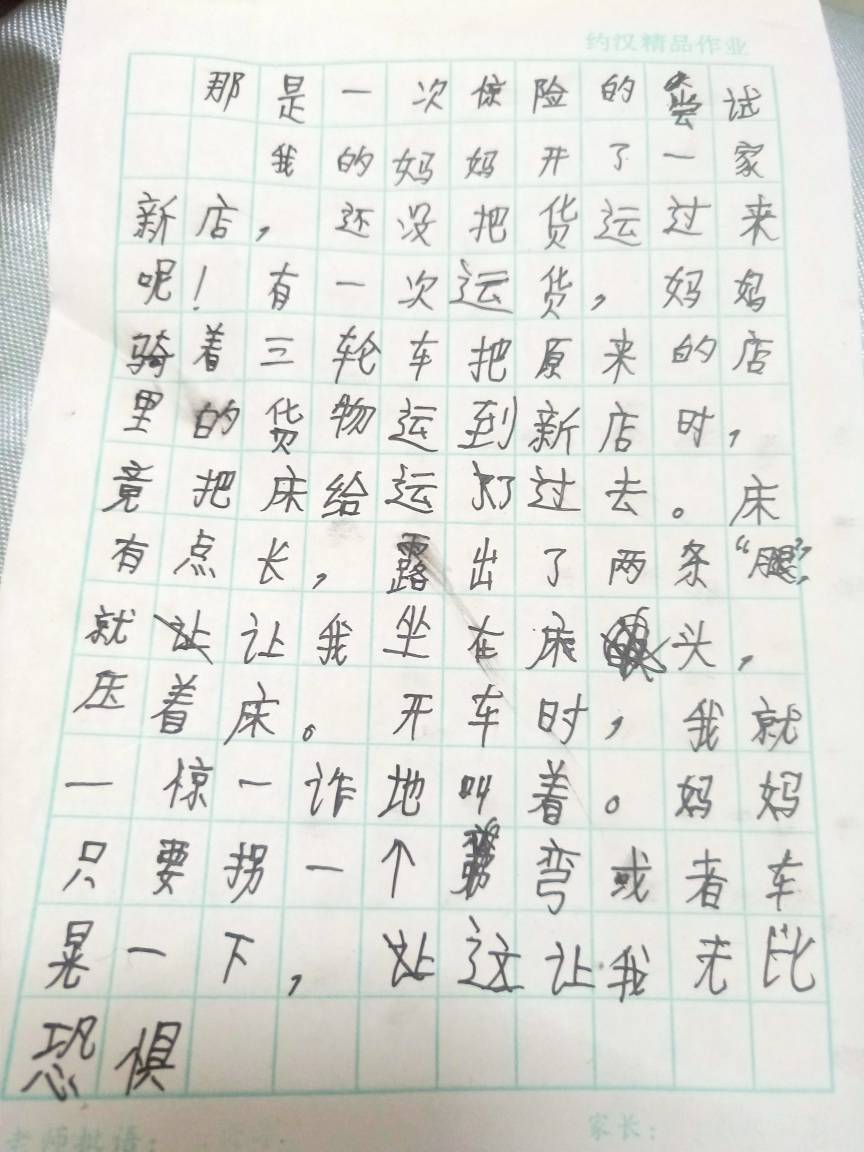 约汉精品作业
那是一次惊险的尝试
我的妈妈开了一家
新店，还没把货运过来
呢！有一次运货，妈妈
骑着三轮车把原来的店
里的货物运到新店时，
竟把床给运了过去。床
有点长，露出了两条“腿”，
就让让我坐在床头，
压着床。开车时，我就
一惊一诈地叫着。妈妈
只要拐一个弯或者车
晃一下，这让我无比
恐惧
老师批语：
家长：